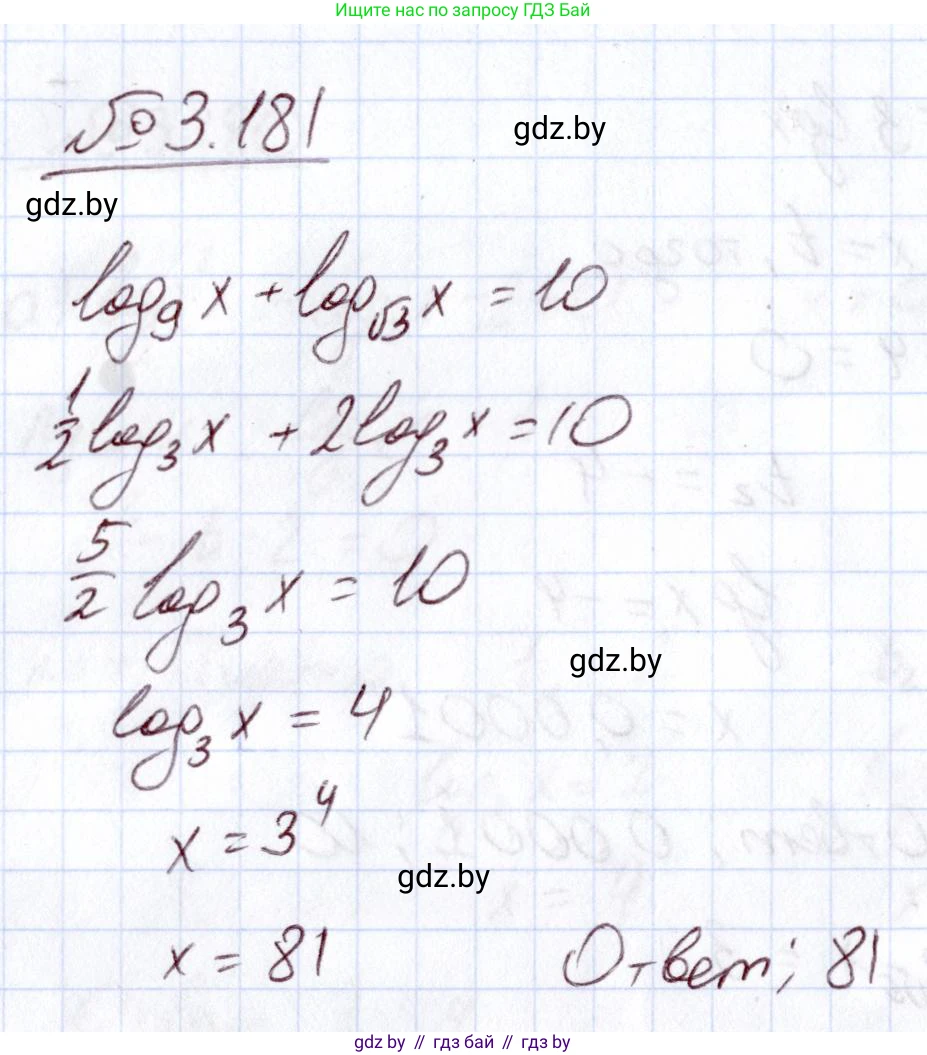 Ищите нас по запросу ГДЗ Бай
№3.181
gdz.by
gdz.by
log₉ x + log_√3 x = 10
1/2 log₃ x + 2 log₃ x = 10
5/2 log₃ x = 10
gdz.by
log₃ x = 4
x = 3⁴
gdz.by
x = 81 Ответ; 81
gdz.by // гдз бай // gdz by